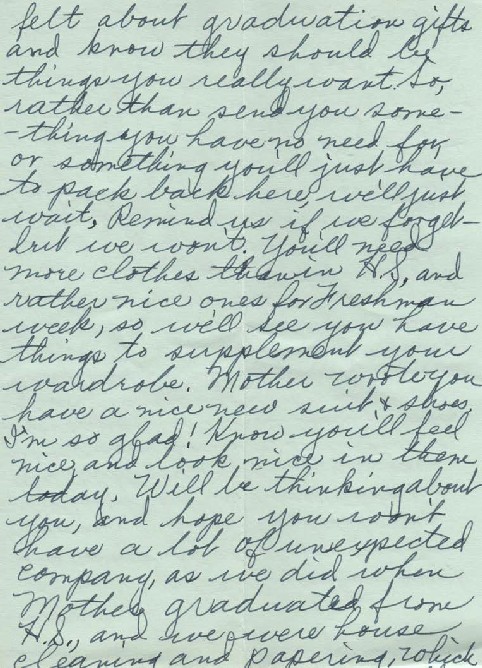 felt about graduation gifts
and know they should be
things you really want. So,
rather than send you some-
-thing you have no need for,
or something you'll just have
to pack back here, we'll just
wait. Remind us if we forget-
but we won't. You'll need
more clothes than in H.S, and
rather nice ones for Freshman
week, so we'll see you have
things to supplement your
wardrobe. Mother wrote you
have a nice new suit & shoes.
I'm so glad! Know you'll feel
nice, and look nice in them
today. Will be thinking about
you, and hope you won't
have a lot of unexpected
company, as we did when
Mother graduated from
H.S., and we were house
cleaning and papering, which